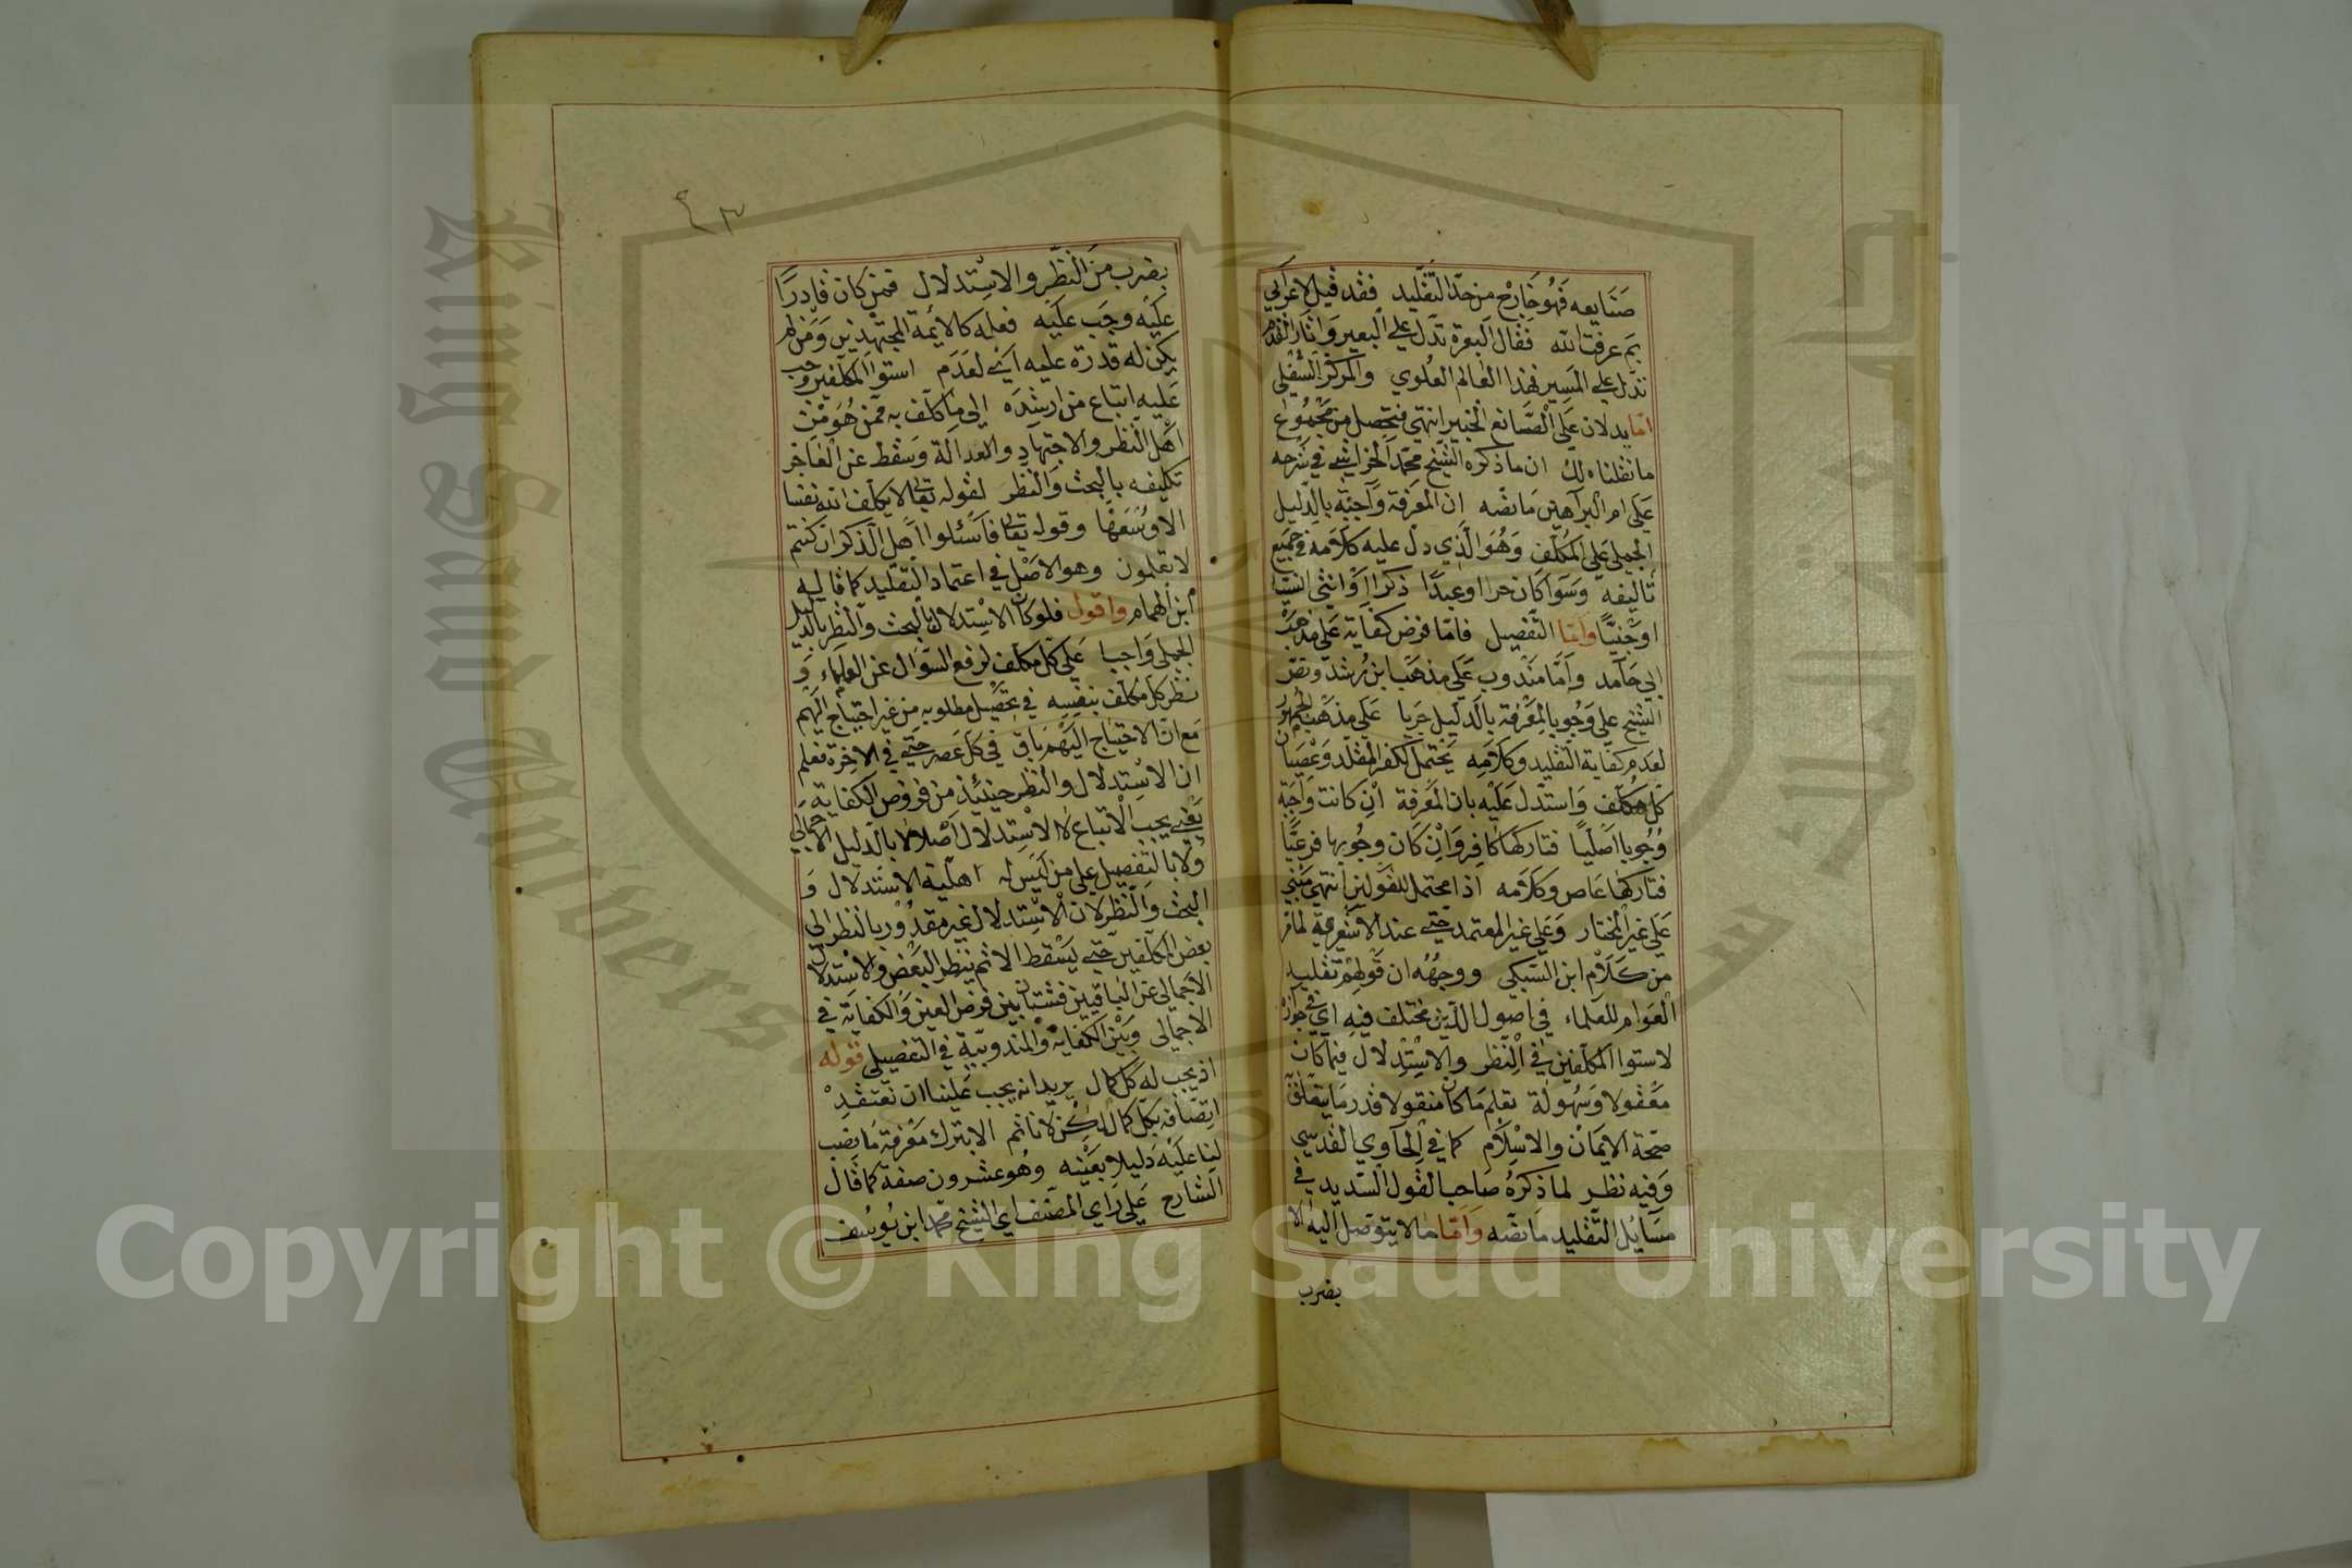 صنايعه فهو خارج من حد التقليد فقد قيل لاعرابي
بم عرفت الله فقال البعرة تدل على البعير واثار القدم
تدل على المسير فهذا العالم العلوي والمركز السفلي
اما يدلان على الصانع الخبير انتهى فتحصل من مجموع
ما نقلناه لك ان ما ذكره الشيخ محمد الخراشي في شرحه
على ام البراهين ما نصه ان المعرفة واجبة بالدليل
الجملي على المكلف وهو الذي دل عليه كلامه في جميع
تاليفه وسوا كان حرا او عبدا ذكرا او انثى انسيا
او جنيا واما التفصيل فاما فرض كفاية على مذهب
ابي حامد واما مندوب على مذهب ابن رشد ونص
الشيخ على وجوب المعرفة بالدليل جريا على مذهب الجمهور
لعدم كفاية التقليد وكلامه يحتمل لكفر المقلد وعصيان
كل مكلف واستدل عليه بان المعرفة ان كانت واجبة
وجوبا اصليا فتاركها كافر وان كان وجوبها فرعيا
فتاركها عاص وكلامه اذا محتمل للقولين انتهى مبني
على غير المختار وعلى غير المعتمد حتى عند الاشعرية لما مر
من كلام ابن السبكي ووجهه ان قولهم تقليد
العوام للعلماء في اصول الدين مختلف فيه اي في جوازه
لاستوا المكلفين في النظر والاستدلال فيما كان
معقولا وسهولة تعلم ما كان منقولا قدر ما يتعلق
صحة الايمان والاسلام كما في الحاوي القدسي
وفيه نظر لما ذكره صاحب القول السديد في
مسايل التقليد ما نصه واما ما لا يتوصل اليه الا
بضرب
٤٣
بضرب من النظر والاستدلال فمن كان قادرا
عليه وجب عليه فعله كالايمة المجتهدين ومن لم
يكن له قدرة عليه اي لعدم استوا المكلفين وجب
عليه اتباع من ارشده الى ما كلف به ممن هو من
اهل النظر والاجتهاد والعدالة وسقط عن العاجز
تكليفه بالبحث والنظر لقوله تعالى لا يكلف الله نفسا
الا وسعها وقوله تعالى فاسئلوا اهل الذكر ان كنتم
لا تعلمون وهو الاصل في اعتماد التقليد كما قاله
ابن الهمام واقول فلو كان الاستدلال بالبحث والنظر بالدليل
الجملي واجبا على كل مكلف لرفع السؤال عن العلماء و
نظر كل مكلف بنفسه في تحصيل مطلوبه من غير احتياج اليهم
مع ان الاحتياج اليهم باق في كل عصر حتى في الاخرة فعلم
ان الاستدلال والنظر حينئذ من فروض الكفاية
يعني يجب الاتباع لا الاستدلال اصلا لا بالدليل الاجمالي
ولا بالتفصيل على من ليس له اهلية الاستدلال و
البحث والنظر لان الاستدلال غير مقدور بالنظر الى
بعض المكلفين حتى يسقط الاثم بنظر البعض والاستدلال
الاجمالي عن الباقيين فشتان بين فرض العين والكفاية في
الاجمالي وبين الكفاية والمندوبية في التفصيلي قوله
اذ يجب له كل كمال يريد انه يجب علينا ان نعتقد
اتصافه بكل كمال لكن لا ناثم الا بترك معرفة ما نصب
لنا عليه دليلا بعينه وهو عشرون صفة كما قال
الشارح على راي المصنف اي الشيخ محمد ابن يوسف
Copyright © King Saud University
King Saud University